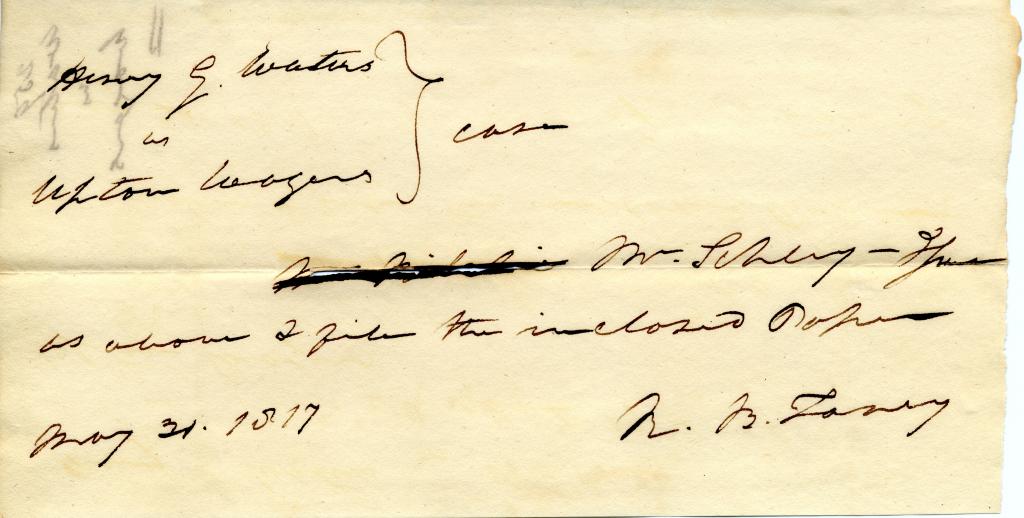 Henry G. Waters
vs
Upton Wagers
case
Mr. Schley –
as above & file the inclosed Paper
May 31. 1817
R. B. Taney